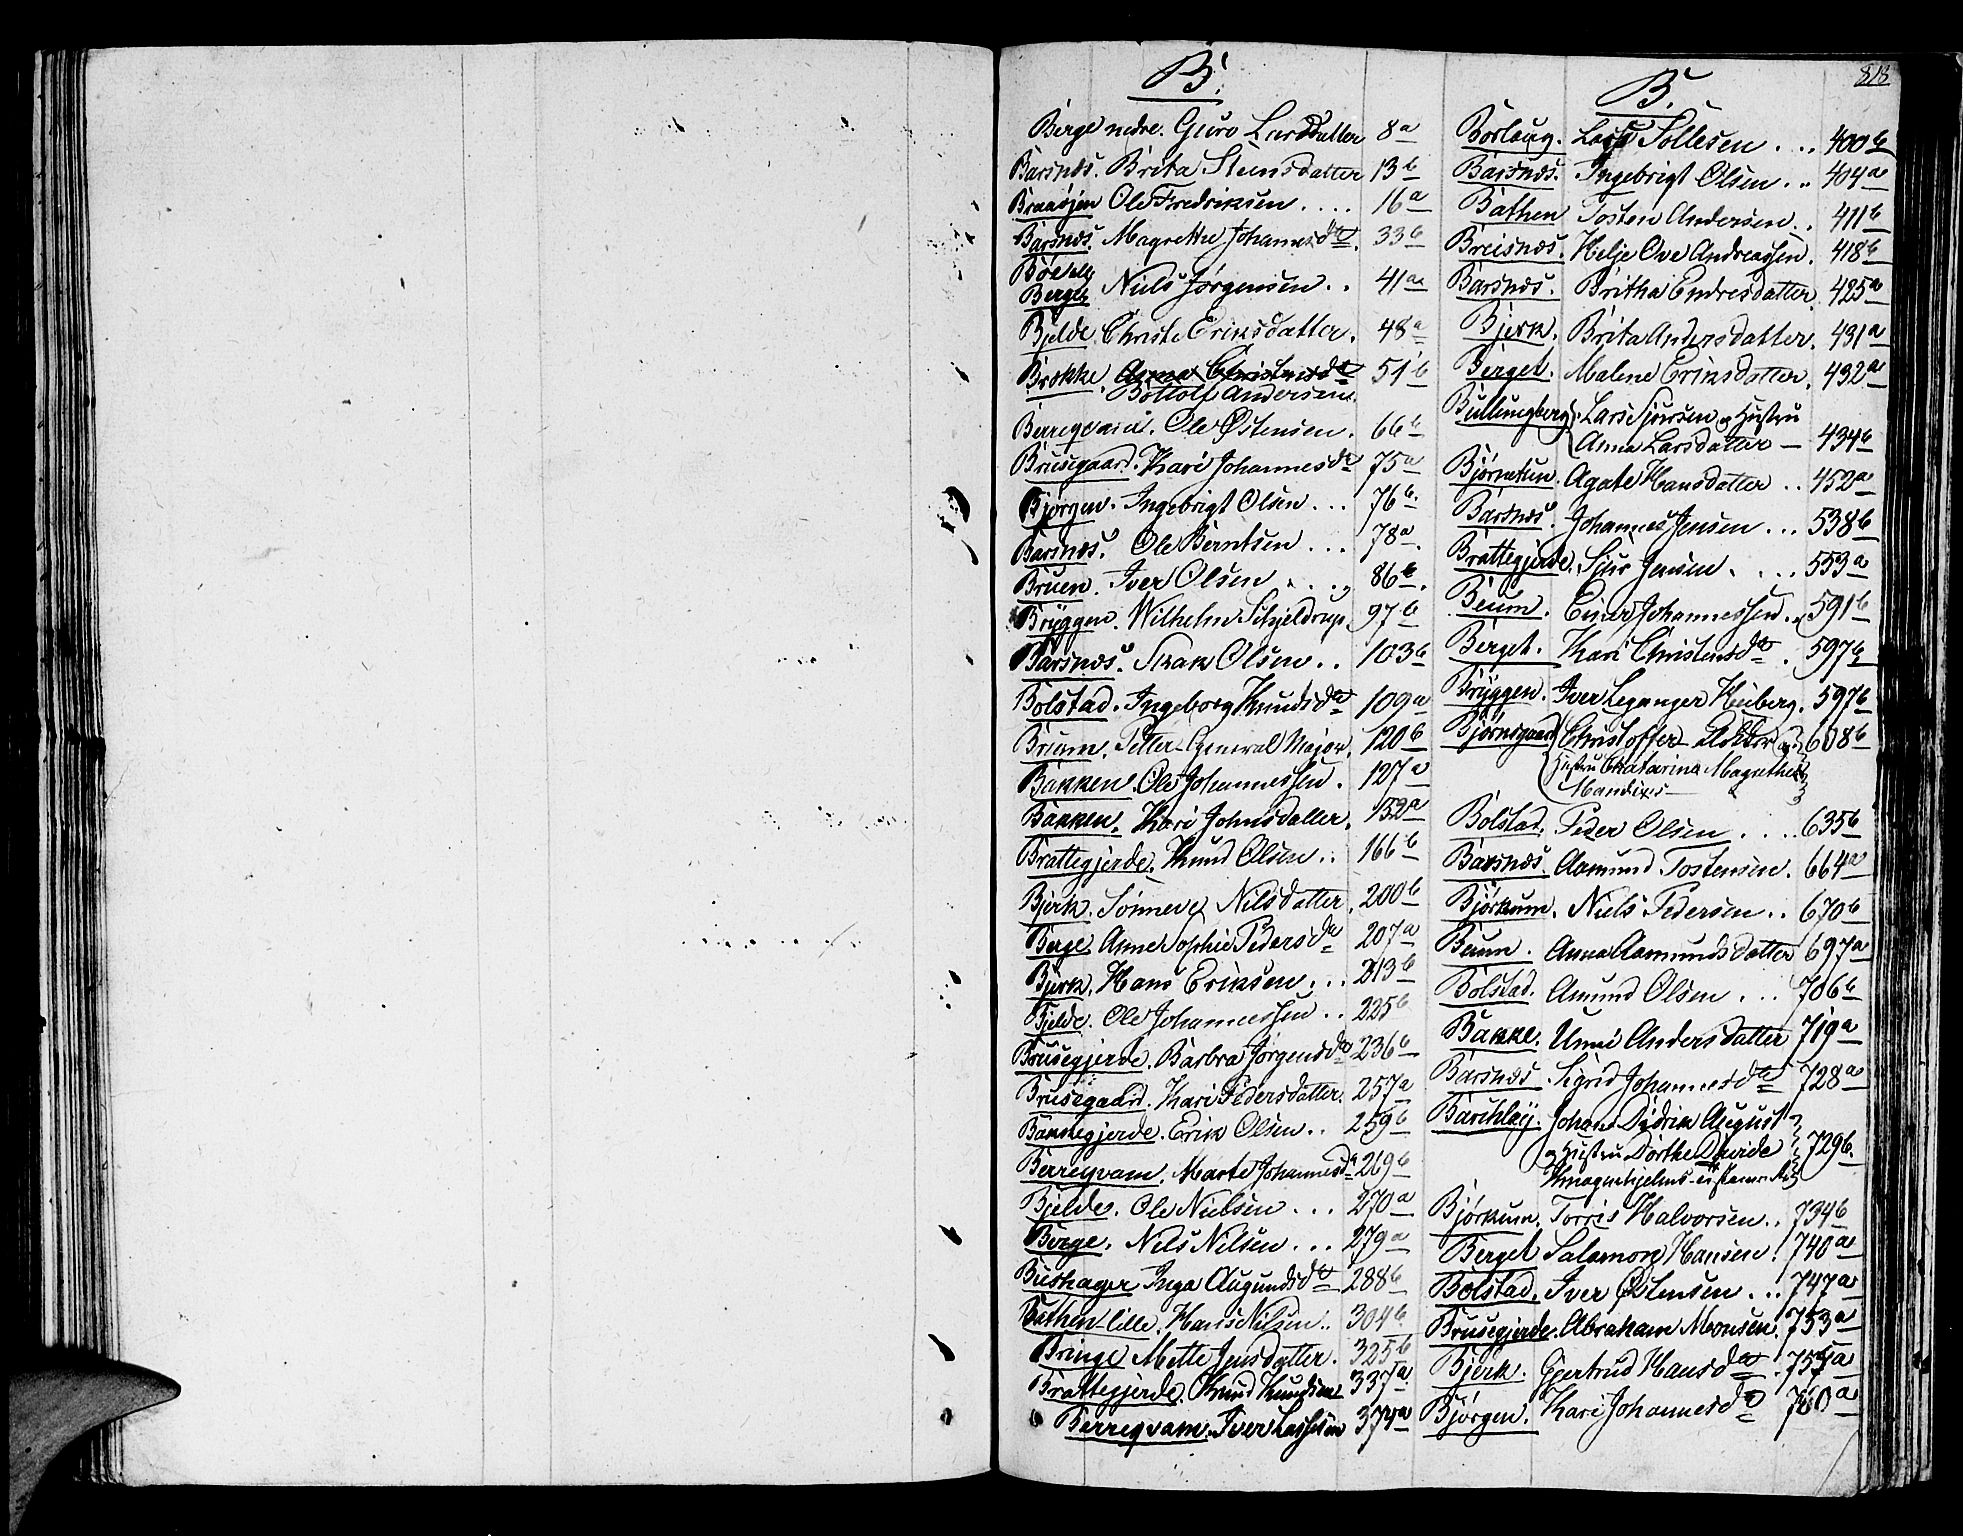 818
B.
Berge nedre. Guro Larsdatter 8a
Barsnæs. Brita Steensdatter 13b
Ole Fredriksen .... 16a
Barsnæs. Magrethe Johannesdtr. 33b
Bøe
Berge Niels Jørgensen .. 41a
Bjelde. Christi Eriksdatter. 48a
Brekke. Anna Christensdtr 51b
Bottolf Andersen.
Berreqvam. Ole Østensen. 66b
Brusegaard. Kari Johannesdtr 75a
Bjørgen. Ingebrigt Olsen ... 76b.
Barsnæs. Ole Berntsen ... 78a.
Bruen. Iver Olsen .... 86b.
Bryggen. Wilhelm Schjeldrup. 97b
Barsnæs. Isaak Olsen .. 103b
Bolstad. Ingeborg Knudsdtr 109a
Brium. Petter General Major. 120b
Bakken. Ole Johannessen. 127a
Bakken. Kari Johnsdatter. 152a
Brattegjerde. Knud Olsen .. 166b
Bjerk. Sønneve Nilsdatter. 200b
Berge Anne Sophie Pedersdtr 207a
Bjerk. Hans Eriksen ... 213b
Bjelde. Ole Johannessen .. 225b
Brusegjerde. Barbra Jørgensdtr 236b
Brusegaard. Kari Pedersdatter. 257a
Bakkegjerde. Erik Olsen .. 259b
Berreqvam. Marte Johannesdtr 269b
Bjelde. Ole Nielsen ... 270a
Berge. Nels Nilsen ... 279a
Bushager Inga Augundsdtr 288b
Bathen lille. Hans Nilsen .. 304b
Bringe Mette Jensdatter. 325b
Brattegjerde. Knud Knudsen 337a
Berreqvam. Iver Lassesen 374a
B.
Borlaug. Lars Sollesen ... 400b
Barsnæs. Ingebrigt Olsen .. 404a
Bathen Tosten Andersen .. 411b
Breisnæs. Helje Ove Andreassen. 418b
Barsnæs. Britha Endresdatter. 425a
Bjerk. Brita Andersdatter. 431a
Berget. Malene Eriksdatter. 432a
Bullungberg. Lars Sjursen og Hustru
Anna Larsdatter — 434b
Bjørnetun. Agate Hansdatter .. 452a
Barsnæs. Johannes Jensen ... 538b
Brattegjerde. Sjur Jensen .... 553a
Beum. Einar Johannessen .. 591b
Berget. Kari Christensdtr. 597b
Bryggen. Iver Leganger Heiberg. 597b
Bjørnsgaard Christoffer Doktor og 608b
Hustru Chatarina Magrethe
Mandixes
Bolstad. Peder Olsen .... 635b
Barsnæs. Aamund Tostensen. 664a
Bjørkum. Niels Pedersen .. 670b
Beum. Anna Aamundsdatter 697a
Bolstad. Amund Olsen ... 706b
Bakke. Unni Andersdatter 719a
Barsnæs. Sigrid Johannesdtr 728a
Barchley. Johan Didrik August
og Hustru Dorthe Davide 729b.
Bjørkum. Torris Halvorsen .. 734b
Berget Salamon Hansen. 740a
Bolstad. Iver Østensen ... 747a
Brusegjerde. Abraham Monsen. 753a
Bjerk. Gjertrud Hansdtr. 757a
Bjørgen. Kari Johannesdtr 760a